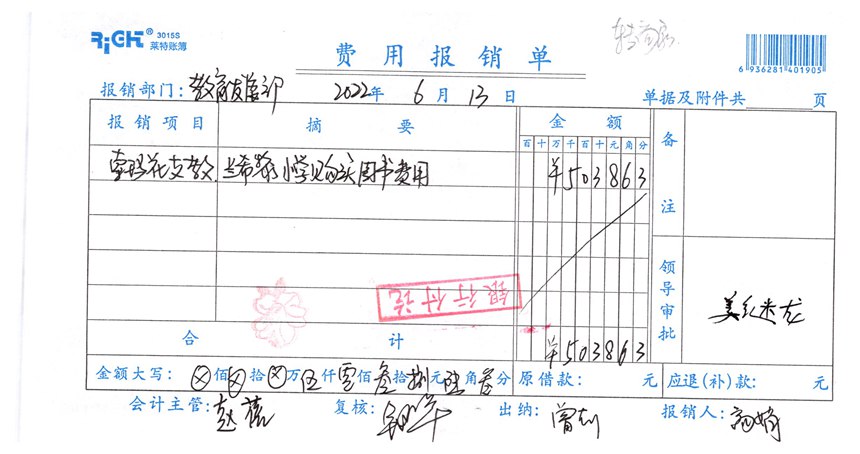 RiGHT® 3015S
莱特账簿
转高永
费用报销单
6 936281 401905
报销部门: 教育发展部 2022年 6月 13日 单据及附件共 页
报销项目 摘要 金额 备注
百十万千百十元角分
索玛花支教 兰希黎小学购买图书费用 ¥503863
银行付讫
领导审批
合计 ¥503863
金额大写: ⊗佰⊗拾⊗万伍仟零佰叁拾捌元陆角叁分 原借款: 元 应退(补)款: 元
会计主管: 赵蓓 复核: 出纳: 曾 报销人: 高娟